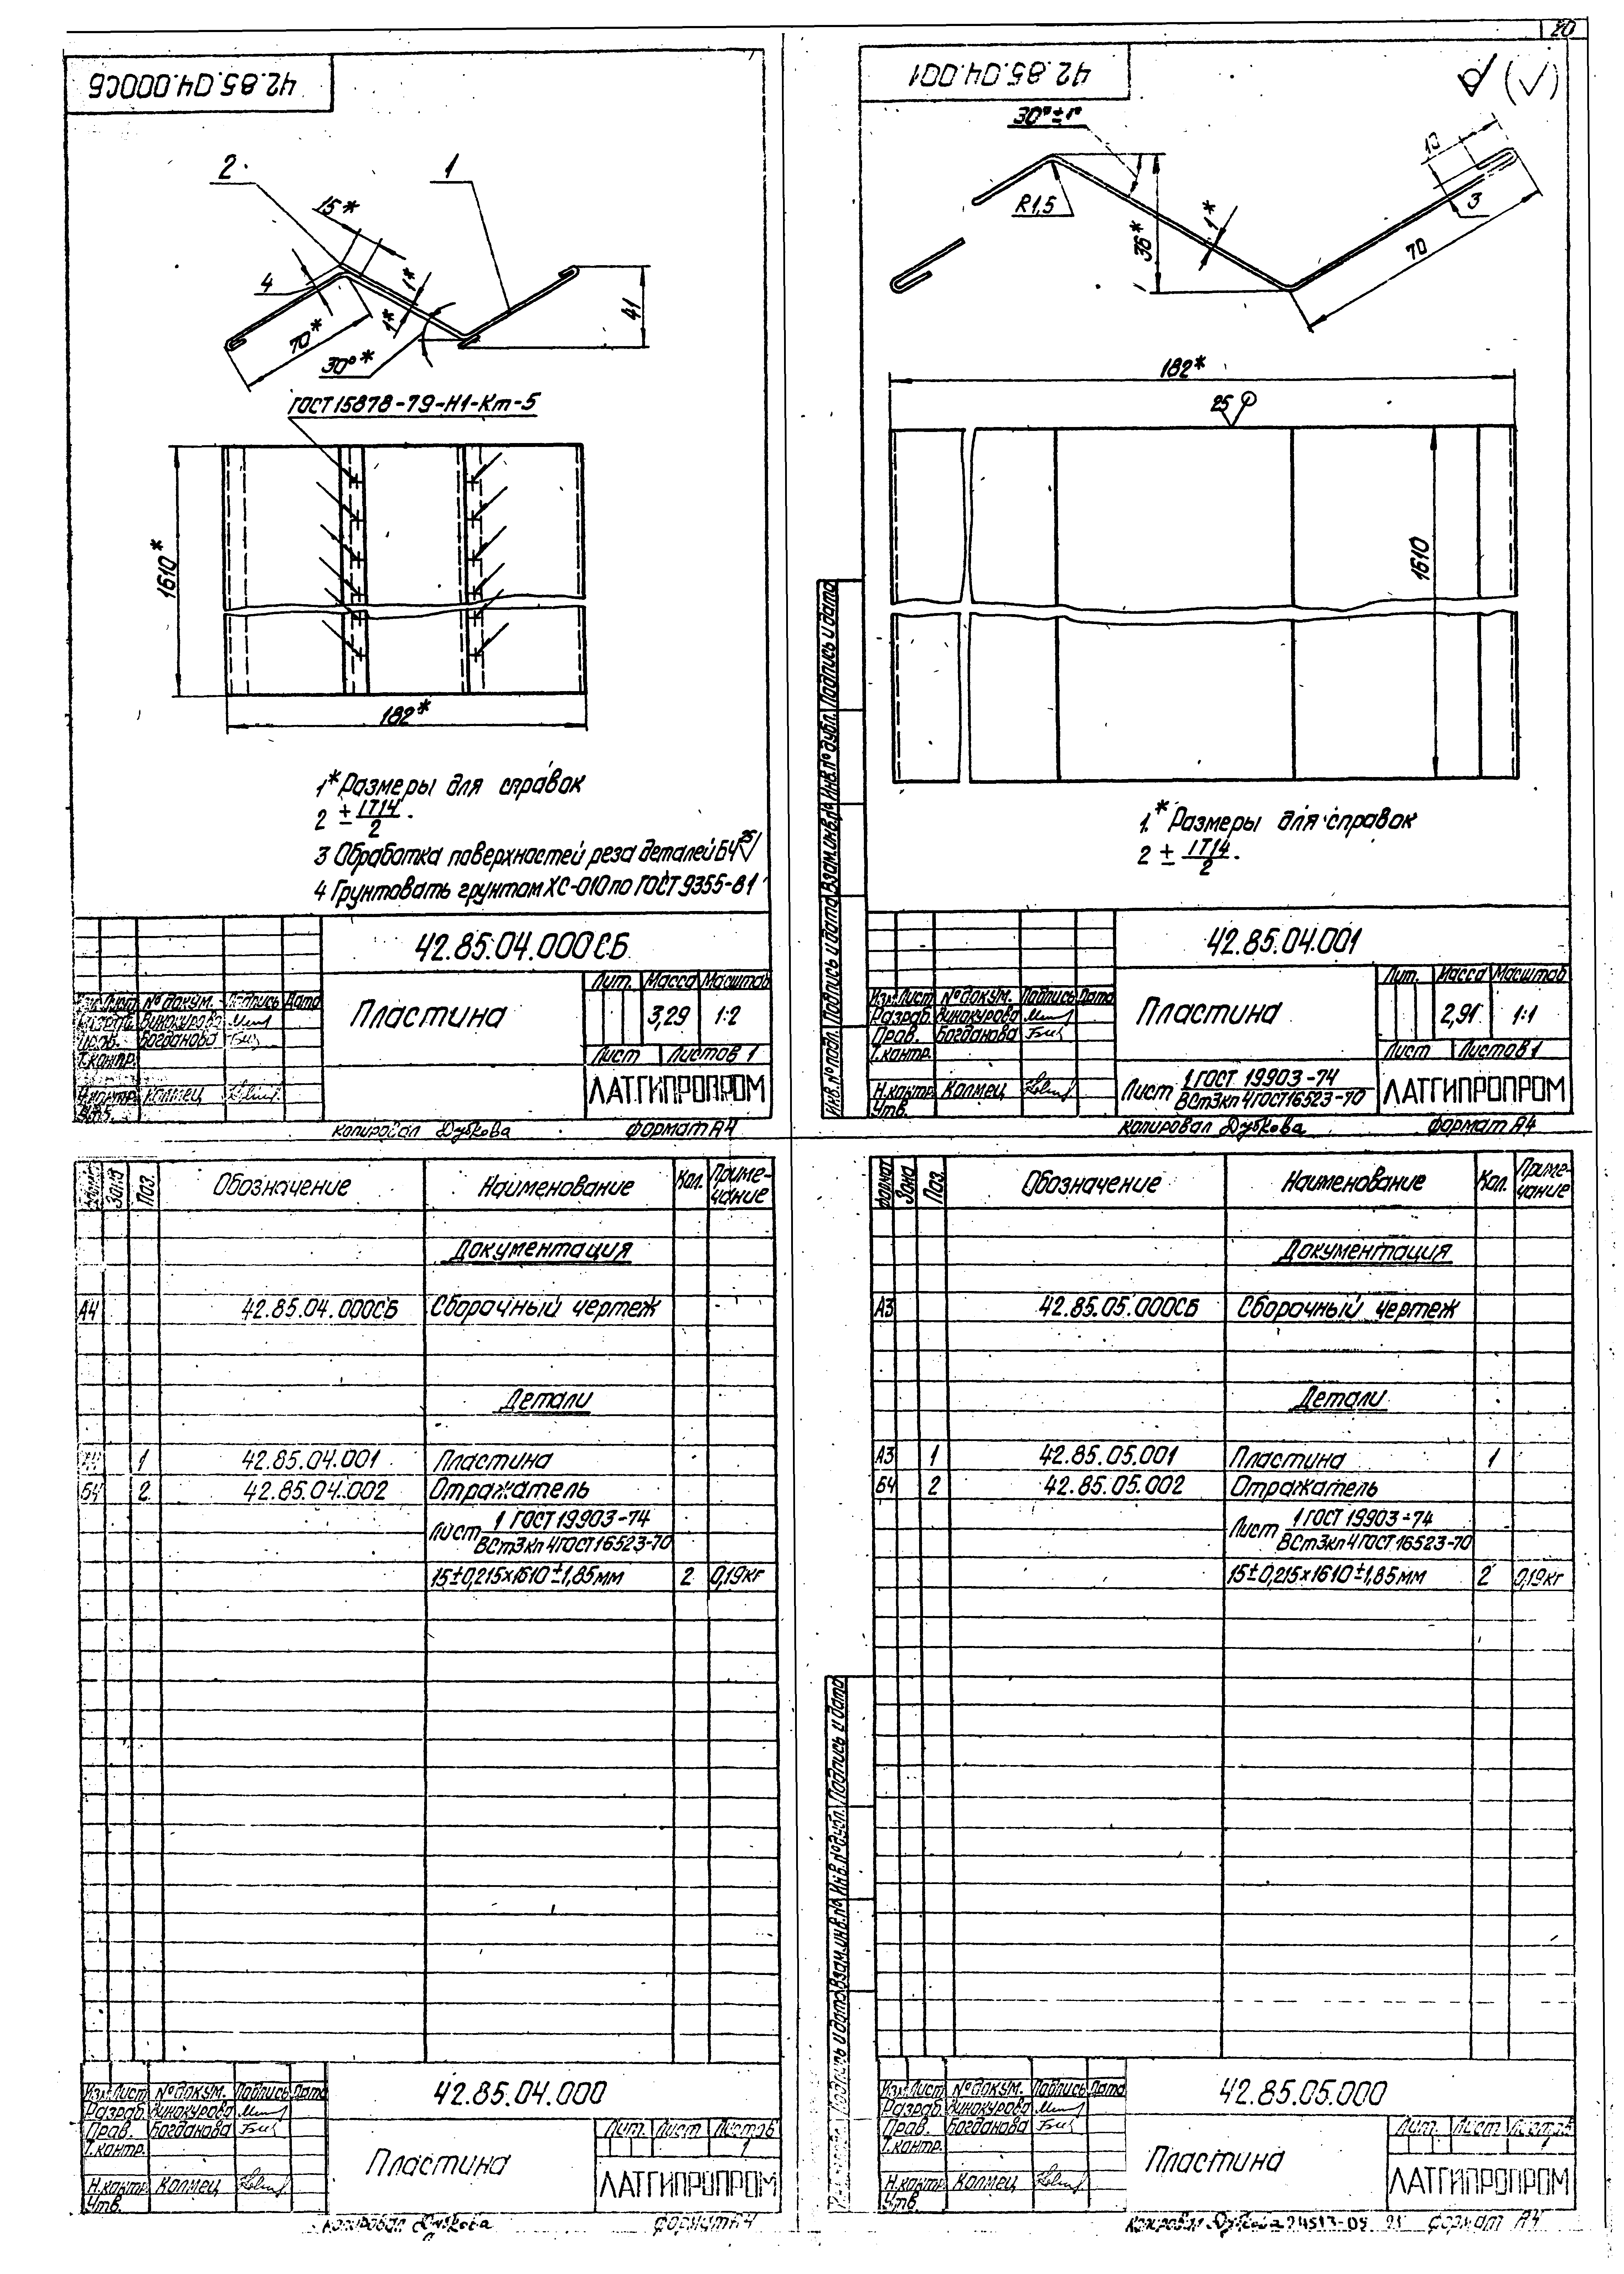 20
42.85.04.000СБ
2
1
15*
4
1*
1*
70*
30°*
41
ГОСТ 15878-79-Н1-Кт-5
1610*
182*
1* Размеры для справок
2 ± IT14/2.
3 Обработка поверхностей реза деталей БЧ 25√
4 Грунтовать грунтом ХС-010 по ГОСТ 9355-81
42.85.04.000СБ
Лит. Масса Масштаб
Пластина 3,29 1:2
Изм. Лист № докум. Подпись Дата
Разраб. Винокурова
Пров. Богданова
Т.контр.
Лист Листов 1
Н.контр. Колмец
Утв.
ЛАТГИПРОПРОМ
копировал Дубкова формат А4
42.85.04.001
30°±1°
R1,5
36*
1*
10
3
70
182*
25
1610
1.* Размеры для справок
2 ± IT14/2.
Инв.№ подл. Подпись и дата Взам.инв.№ Инв.№ дубл. Подпись и дата
42.85.04.001
Лит. Масса Масштаб
Пластина 2,91 1:1
Изм. Лист № докум. Подпись Дата
Разраб. Винокурова
Пров. Богданова
Т.контр.
Лист Листов 1
Н.контр. Колмец
Утв.
Лист 1 ГОСТ 19903-74
ВСт3кп4ГОСТ16523-70
ЛАТГИПРОПРОМ
копировал Дубкова формат А4
Формат Зона Поз. Обозначение Наименование Кол. Приме-
чание
Документация
А4 42.85.04.000СБ Сборочный чертеж
Детали
А4 1 42.85.04.001 Пластина
БЧ 2 42.85.04.002 Отражатель
Лист 1 ГОСТ 19903-74
ВСт3кп4ГОСТ16523-70
15±0,215х1610±1,85мм 2 0,19кг
42.85.04.000
Изм. Лист № докум. Подпись Дата
Разраб. Винокурова
Пров. Богданова
Т.контр.
Н.контр. Колмец
Утв.
Пластина
Лит. Лист Листов
1
ЛАТГИПРОПРОМ
копировал Дубкова формат А4
Формат Зона Поз. Обозначение Наименование Кол. Приме-
чание
Документация
А3 42.85.05.000СБ Сборочный чертеж
Детали
А3 1 42.85.05.001 Пластина 1
БЧ 2 42.85.05.002 Отражатель
Лист 1 ГОСТ 19903-74
ВСт3кп4ГОСТ16523-70
15±0,215х1610±1,85мм 2 0,19кг
Подпись и дата Взам.инв.№ Инв.№ дубл. Подпись и дата
42.85.05.000
Изм. Лист № докум. Подпись Дата
Разраб. Винокурова
Пров. Богданова
Т.контр.
Н.контр. Колмец
Утв.
Пластина
Лит. Лист Листов
1
ЛАТГИПРОПРОМ
копировал Дубкова 24513-05 21 формат А4